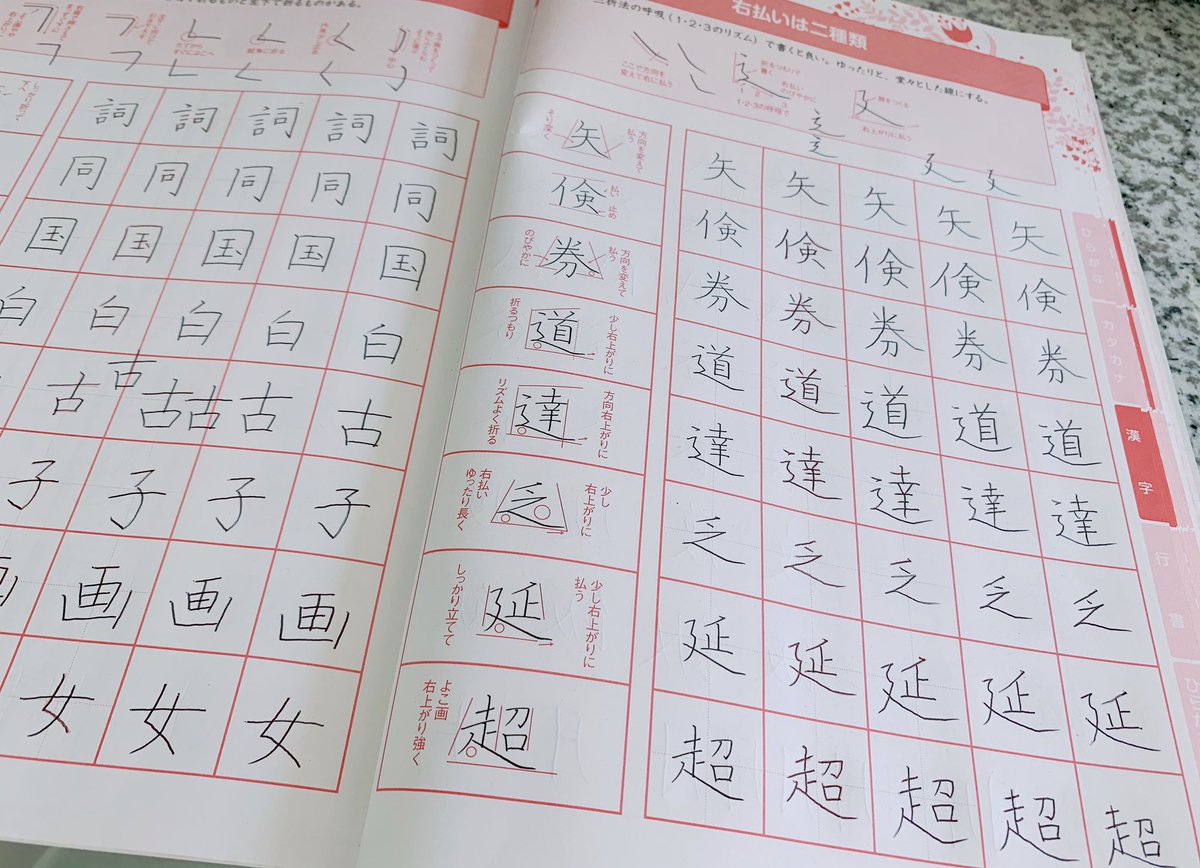 右払いは二種類
二折法の呼吸(1・2・3のリズム)で書くと良い。ゆったりと、堂々とした線にする。
ここで方向を
変えて右に払う
折るつもりで
書く
右払い
のびやかに
1 2 3
1・2・3の呼吸で
肩をつくる
右上がりに払う
詞 詞 詞 詞 詞
同 同 同 同 同
国 国 国 国 国
白 白 白 白 白
古 古 古 古 古 古
子 子 子 子
画 画 画
女 女 女
そり深く
矢
方向を変えて
払う
矢 矢 矢 矢 矢
倹
払い
止め
倹 倹 倹 倹 倹
のびやかに
券
方向を変えて
払う
券 券 券 券 券
折るつもり
道
少し右上がりに
道 道 道 道 道
リズムよく折る
達
方向右上がりに
達 達 達 達 達
右払い
ゆったり長く
乏
少し
右上がりに
乏 乏 乏 乏 乏
しっかり立てて
延
少し右上がりに
払う
延 延 延 延 延
よこ画
右上がり強く
超
超 超 超 超 超
ひらがな
カタカナ
漢字
行書